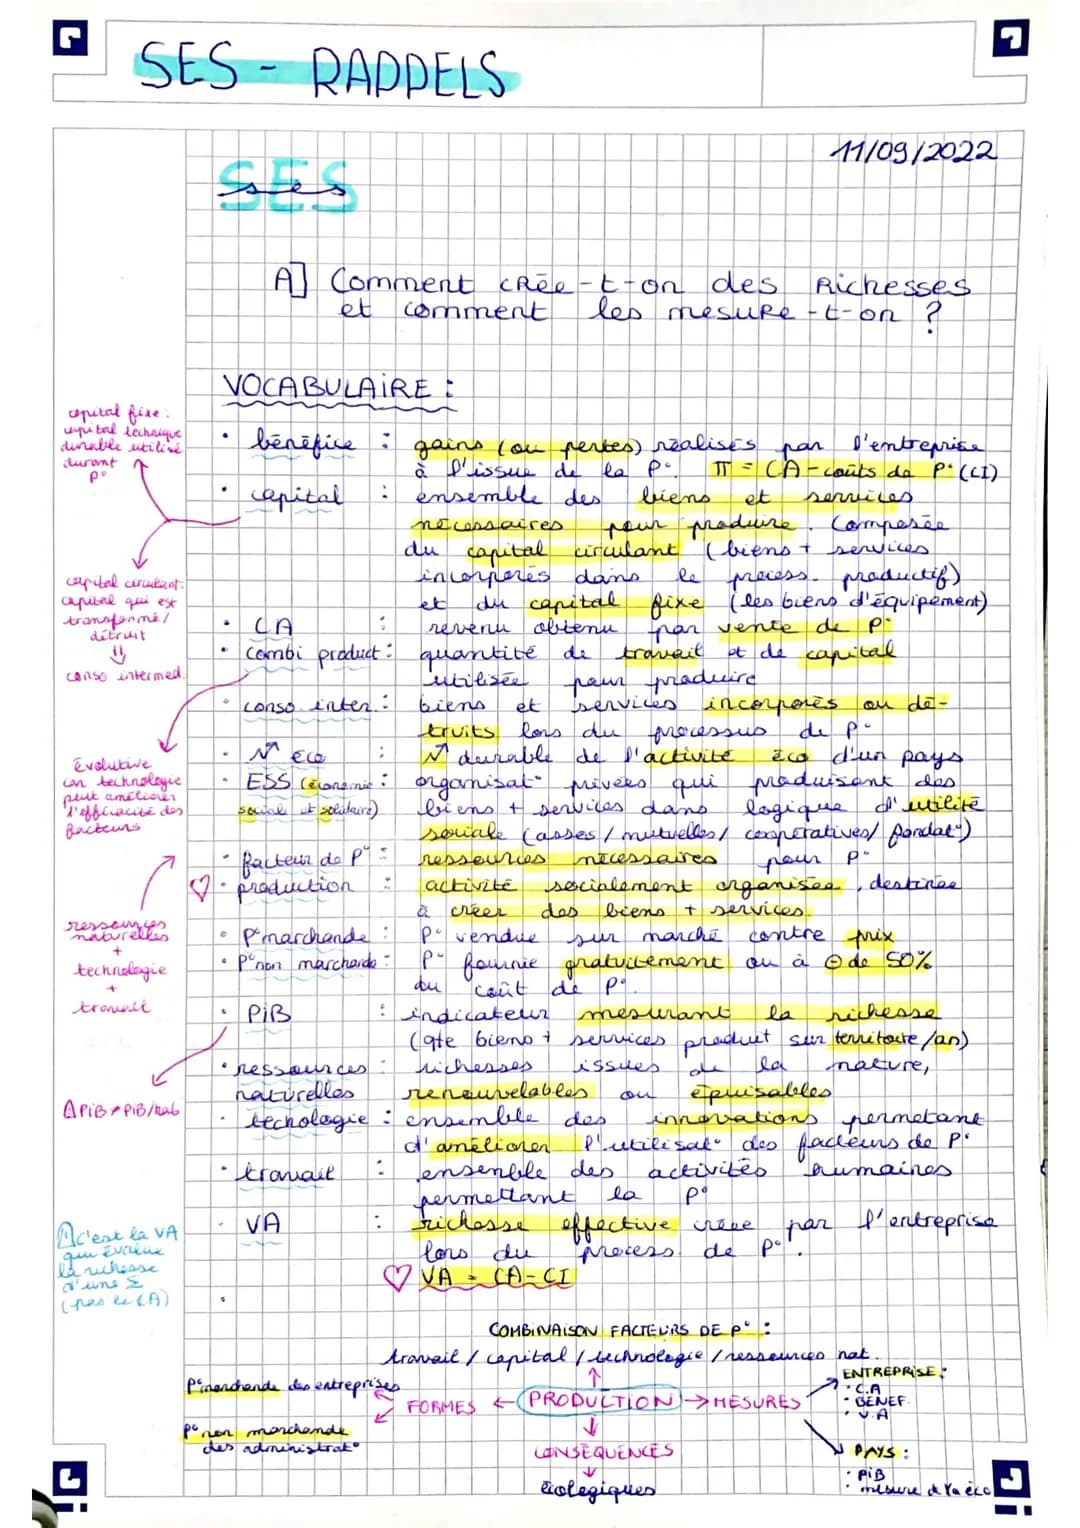 SES - RAPPELS
11/09/2022
SES
A] Comment crée-t-on des Richesses
et comment les mesure-t-on ?
VOCABULAIRE :
capital fixe :
capital technique
durable utilisé
durant
p°
• bénéfice : gains (ou pertes) réalisés par l'entreprise
à l'issue de la P° π = CA - coûts de P° (CI)
• capital : ensemble des biens et services
nécessaires pour produire. Composée
du capital circulant (biens + services
incorporés dans le process. productif)
et du capital fixe (les biens d'équipement)
capital circulant:
capital qui est
transformé /
détruit
conso intermed.
• CA : revenu obtenu par vente de P°
• combi product : quantité de travail et de capital
utilisée pour produire
• conso inter. : biens et services incorporés ou dé-
truits lors du processus de P°
évolutive
can technologie
peut améliorer
l'efficacité des
facteurs
• ↗ éco : ↗ durable de l'activité éco d'un pays
• ESS (économie : organisat° privées qui produisent des
social et solidaire) biens + services dans logique d'utilité
sociale (assos / mutuelles / coopératives / fondat°)
• facteur de P° : ressources nécessaires pour P°
♡ • production : activité socialement organisée, destinée
à créer des biens + services.
ressources
naturelles
+
technologie
+
travail
• P° marchande : P° vendue sur marché contre prix
• P° non marchande : P° fournie gratuitement ou à ⊖ de 50%
du coût de P°.
• PiB : indicateur mesurant la richesse
(qte biens + services produit sur territoire /an)
• ressources : richesses issues de la nature,
naturelles renouvelables ou épuisables
⚠ PiB ≠ PiB/hab
• techologie : ensemble des innovations permetant
d'améliorer l'utilisat° des facteurs de P°
• travail : ensemble des activités humaines
permettant la p°
• VA : richesse effective créée par l'entreprise
lors du process. de p°.
♡ VA = CA - CI
⚠ c'est la VA
qui évalue
la richesse
d'une Σ
(pas le CA)
COMBINAISON FACTEURS DE P° :
travail / capital / technologie / ressources nat.
P° marchande des entreprises
P° non marchande
des administrat°
FORMES ← PRODUCTION → MESURES
ENTREPRISE :
• C.A
• BÉNEF.
• V.A
CONSÉQUENCES
écologiques
PAYS :
• PiB
• mesure de la éco